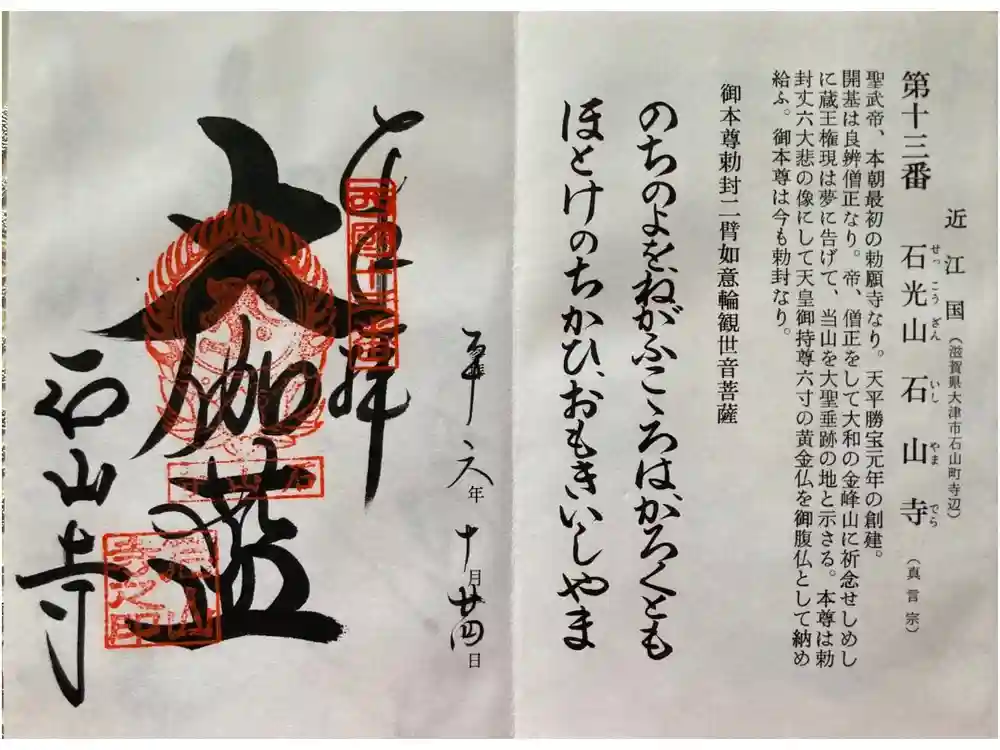 近江国（滋賀県大津市石山町寺辺）
第十三番 石光山 石山寺（真言宗）
せっこうざん いしやまでら
聖武帝、本朝最初の勅願寺なり。天平勝宝元年の創建。
開基は良辨僧正なり。帝、僧正をして大和の金峰山に祈念せしめし
に蔵王権現は夢に告げて、当山を大聖垂跡の地と示さる。本尊は勅
封丈六大悲の像にして天皇御持尊六寸の黄金仏を御腹仏として納め
給ふ。御本尊は今も勅封なり。
御本尊勅封二臂如意輪観世音菩薩
のちのよをねがふこゝろはかろくとも
ほとけのちかひおもきいしやま
六年十月廿四日
奉拝
西國十三番
大伽藍
石山寺